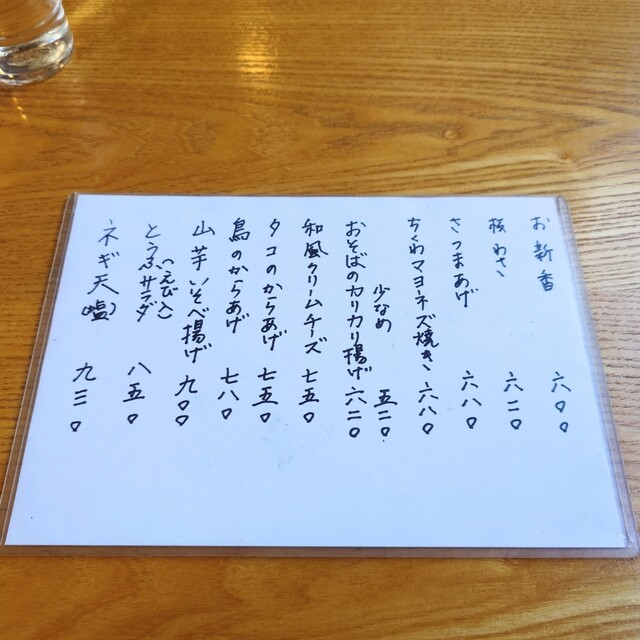 お新香 六〇〇
板わさ 六二〇
さつまあげ 六八〇
ちくわマヨネズ焼き 六八〇
少なめ 五二〇
おそばのカリカリ揚げ 六二〇
和風クリームチーズ 七五〇
タコのからあげ 七五〇
鳥のからあげ 七八〇
山芋いそべ揚げ 九〇〇
(えび入)
とうふサラダ 八五〇
ネギ天 九三〇